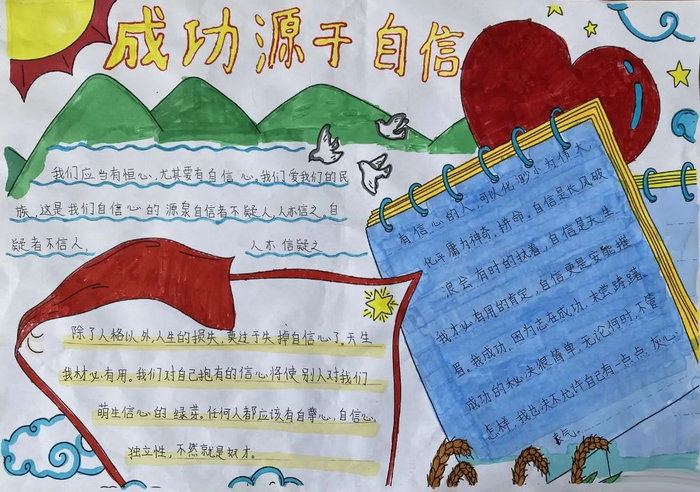 成功源于自信
我们应当有恒心,尤其要有自信心。我们爱我们的民
族,这是我们自信心的源泉自信者不疑人,人亦信之,自
疑者不信人, 人亦信疑之
除了人格以外,人生的损失,莫过于失掉自信心了。天生
我材必有用。我们对自己抱有的信心将使别人对我们
萌生信心的绿芽。任何人都应该有自尊心,自信心,
独立性,不然就是奴才。
有信心的人,可以化渺小为伟大
化平庸为神奇。拼命,自信是长风破
浪会有时的执着,自信是天生
我材必有用的肯定,自信更是安能摧
眉。我成功,因为志在成功,未尝踌躇。
成功的秘决很简单,无论何时,不管
怎样,我也决不允许自己有一点点灰心
丧气。